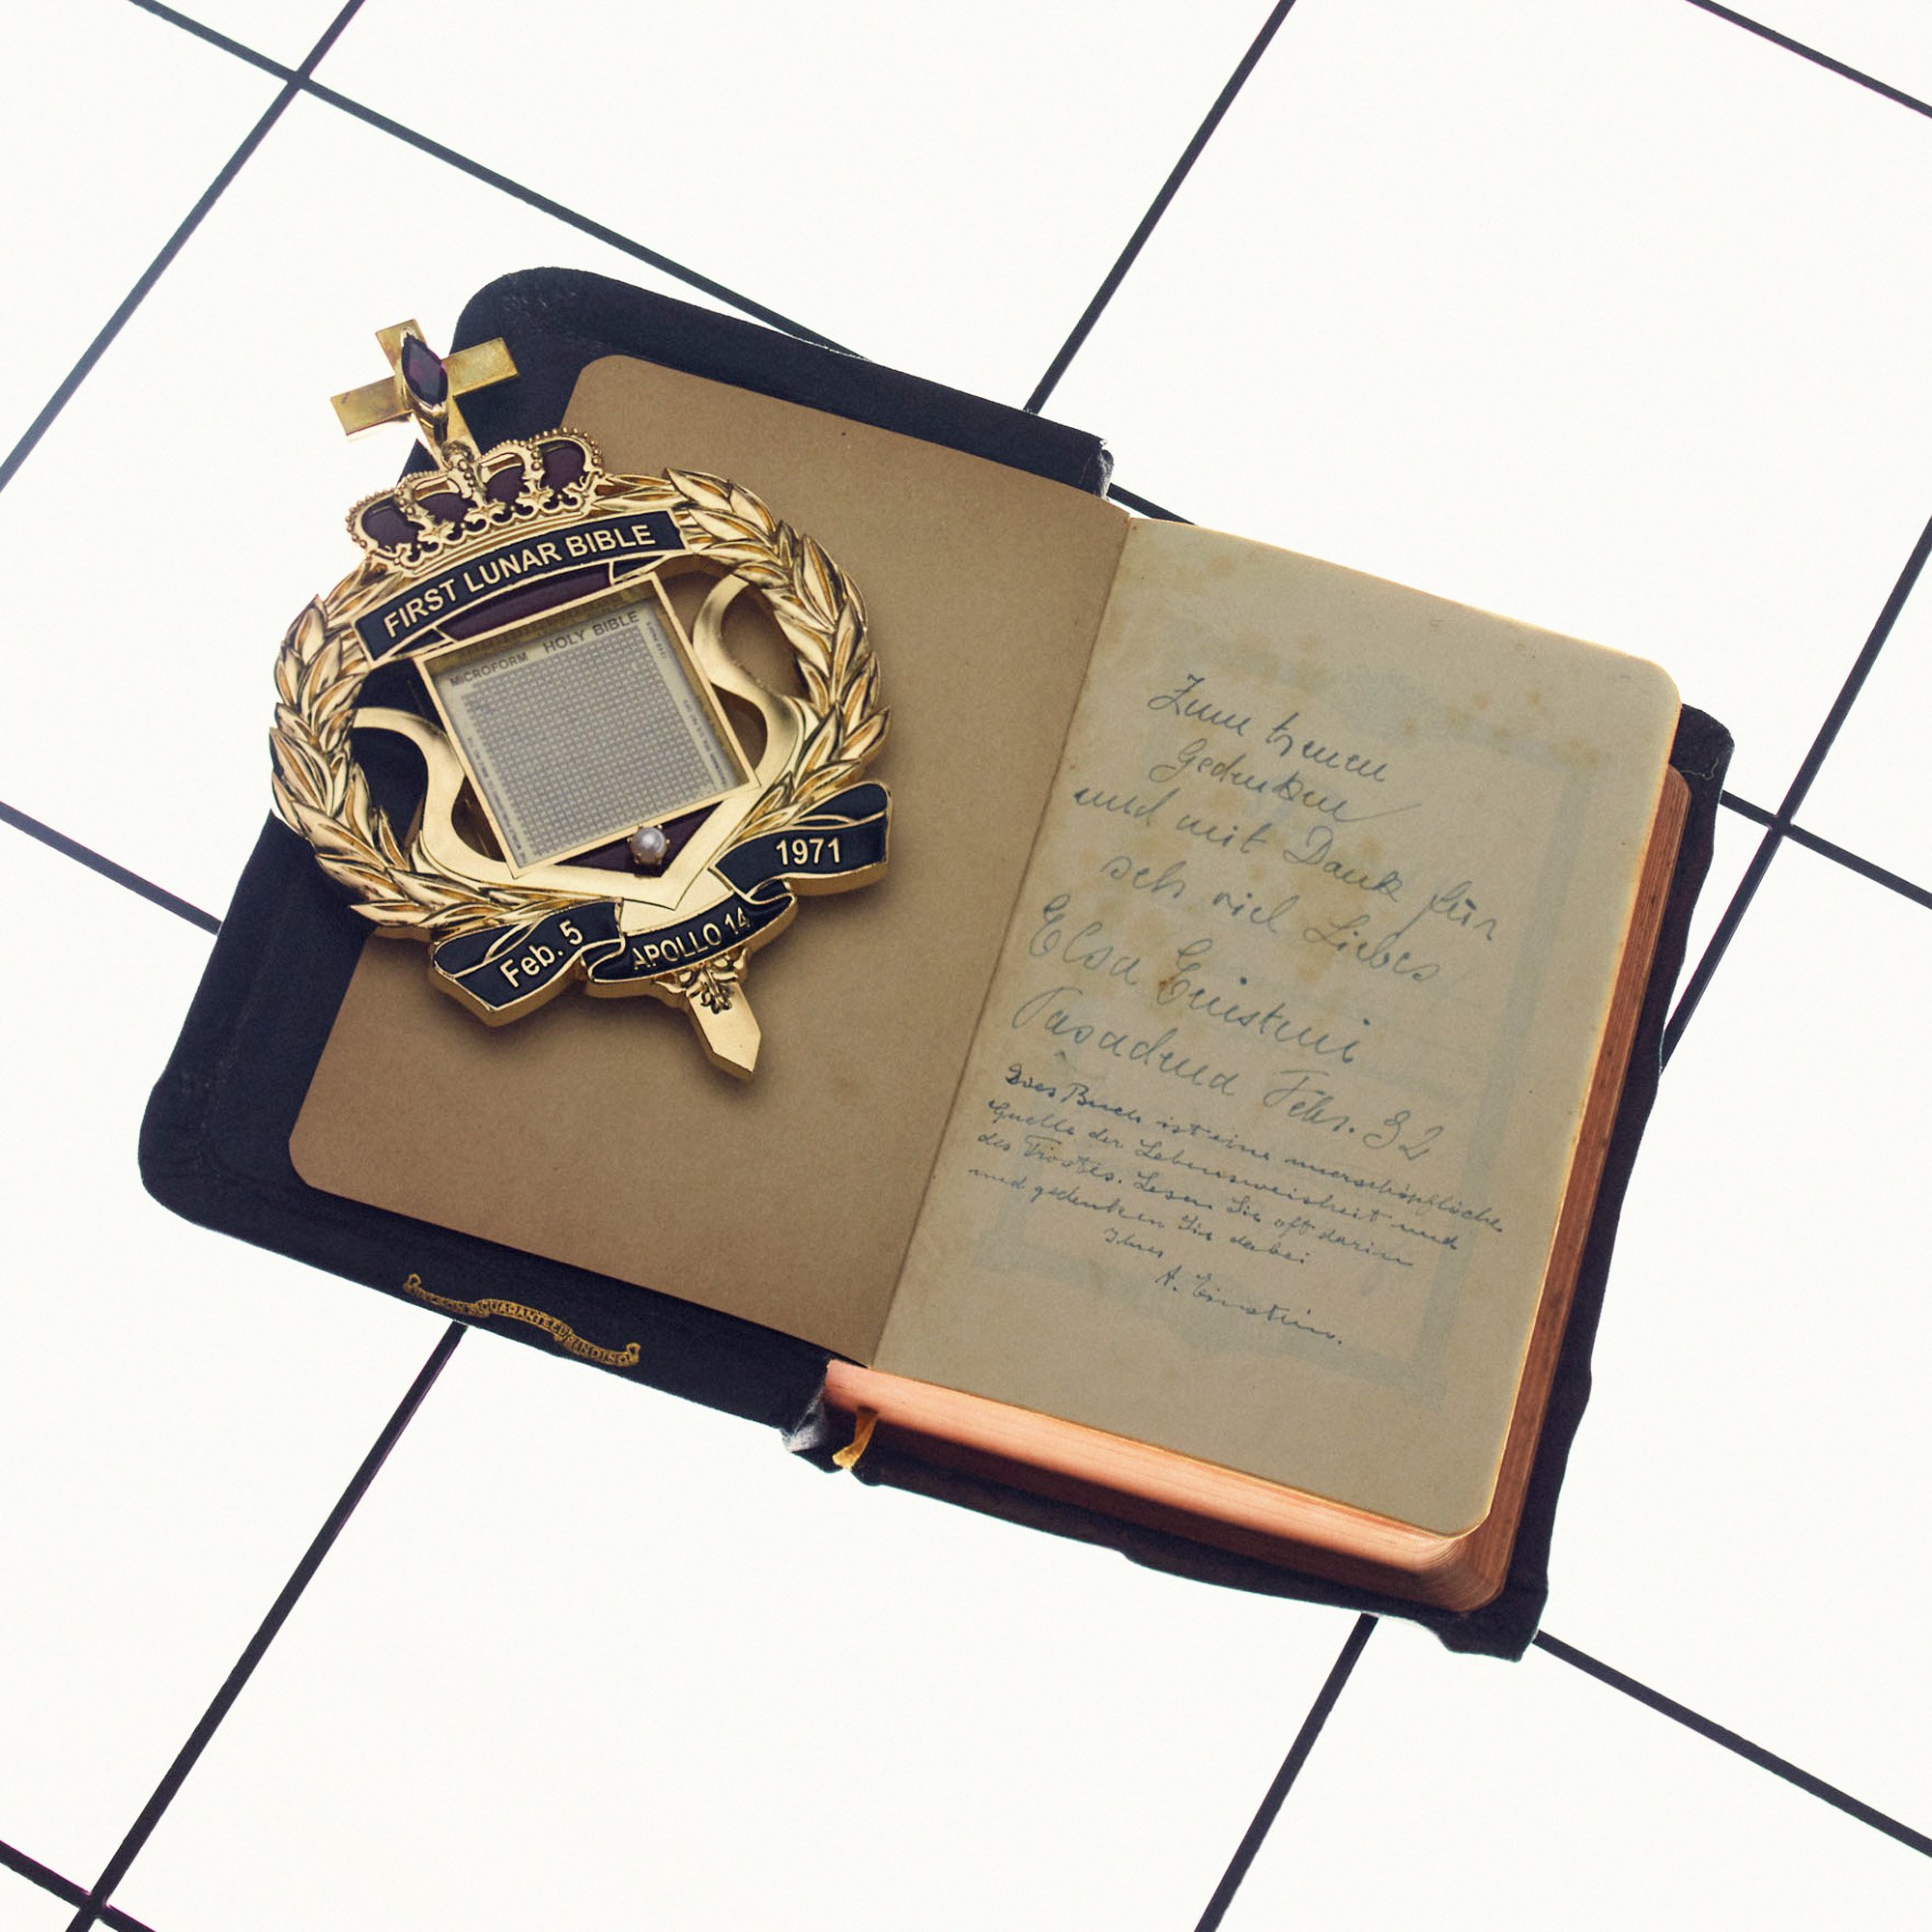 FIRST LUNAR BIBLE
MICROFORM HOLY BIBLE
1971
Feb. 5
APOLLO 14
GUARANTEED BINDING
Zum treuen
Gedenken
und mit Dank für
sehr viel Liebes
Elsa Einstein
Pasadena Febr. 32
Dies Buch ist eine unerschöpfliche
Quelle der Lebensweisheit und
des Trostes. Lesen Sie oft darin
und gedenken Sie dabei
Ihres
A. Einstein.